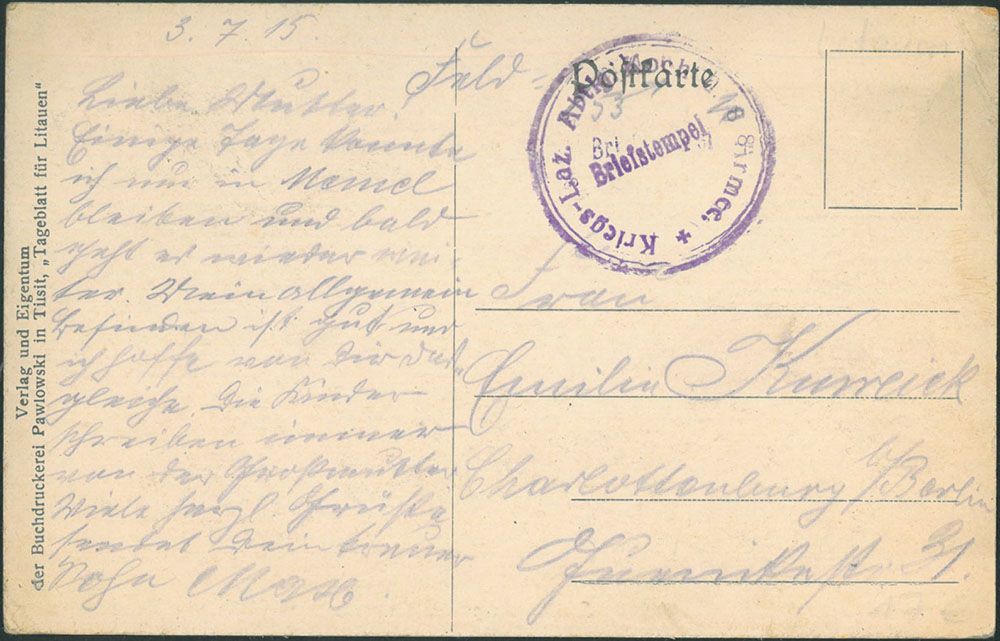 3. 7. 15.
Liebe Mutter!
Einige Tage konnte
ich nur in Memel
bleiben und bald
geht es wieder wei-
ter. Mein allgemein
befinden ist gut und
ich hoffe von Dir das
gleiche. Die Kinder
schreiben immer
von der Großmutter
Viele herzl. Grüße
sendet Dein treuer
Sohn Max.
Verlag und Eigentum
der Buchdruckerei Pawlowski in Tilsit, „Tageblatt für Litauen“
Feld-
Postkarte
Kriegs-Laz. Abtlg. 8. Armee. +
Briefstempel
Frau
Emilie
Charlottenburg b/Berlin
31.